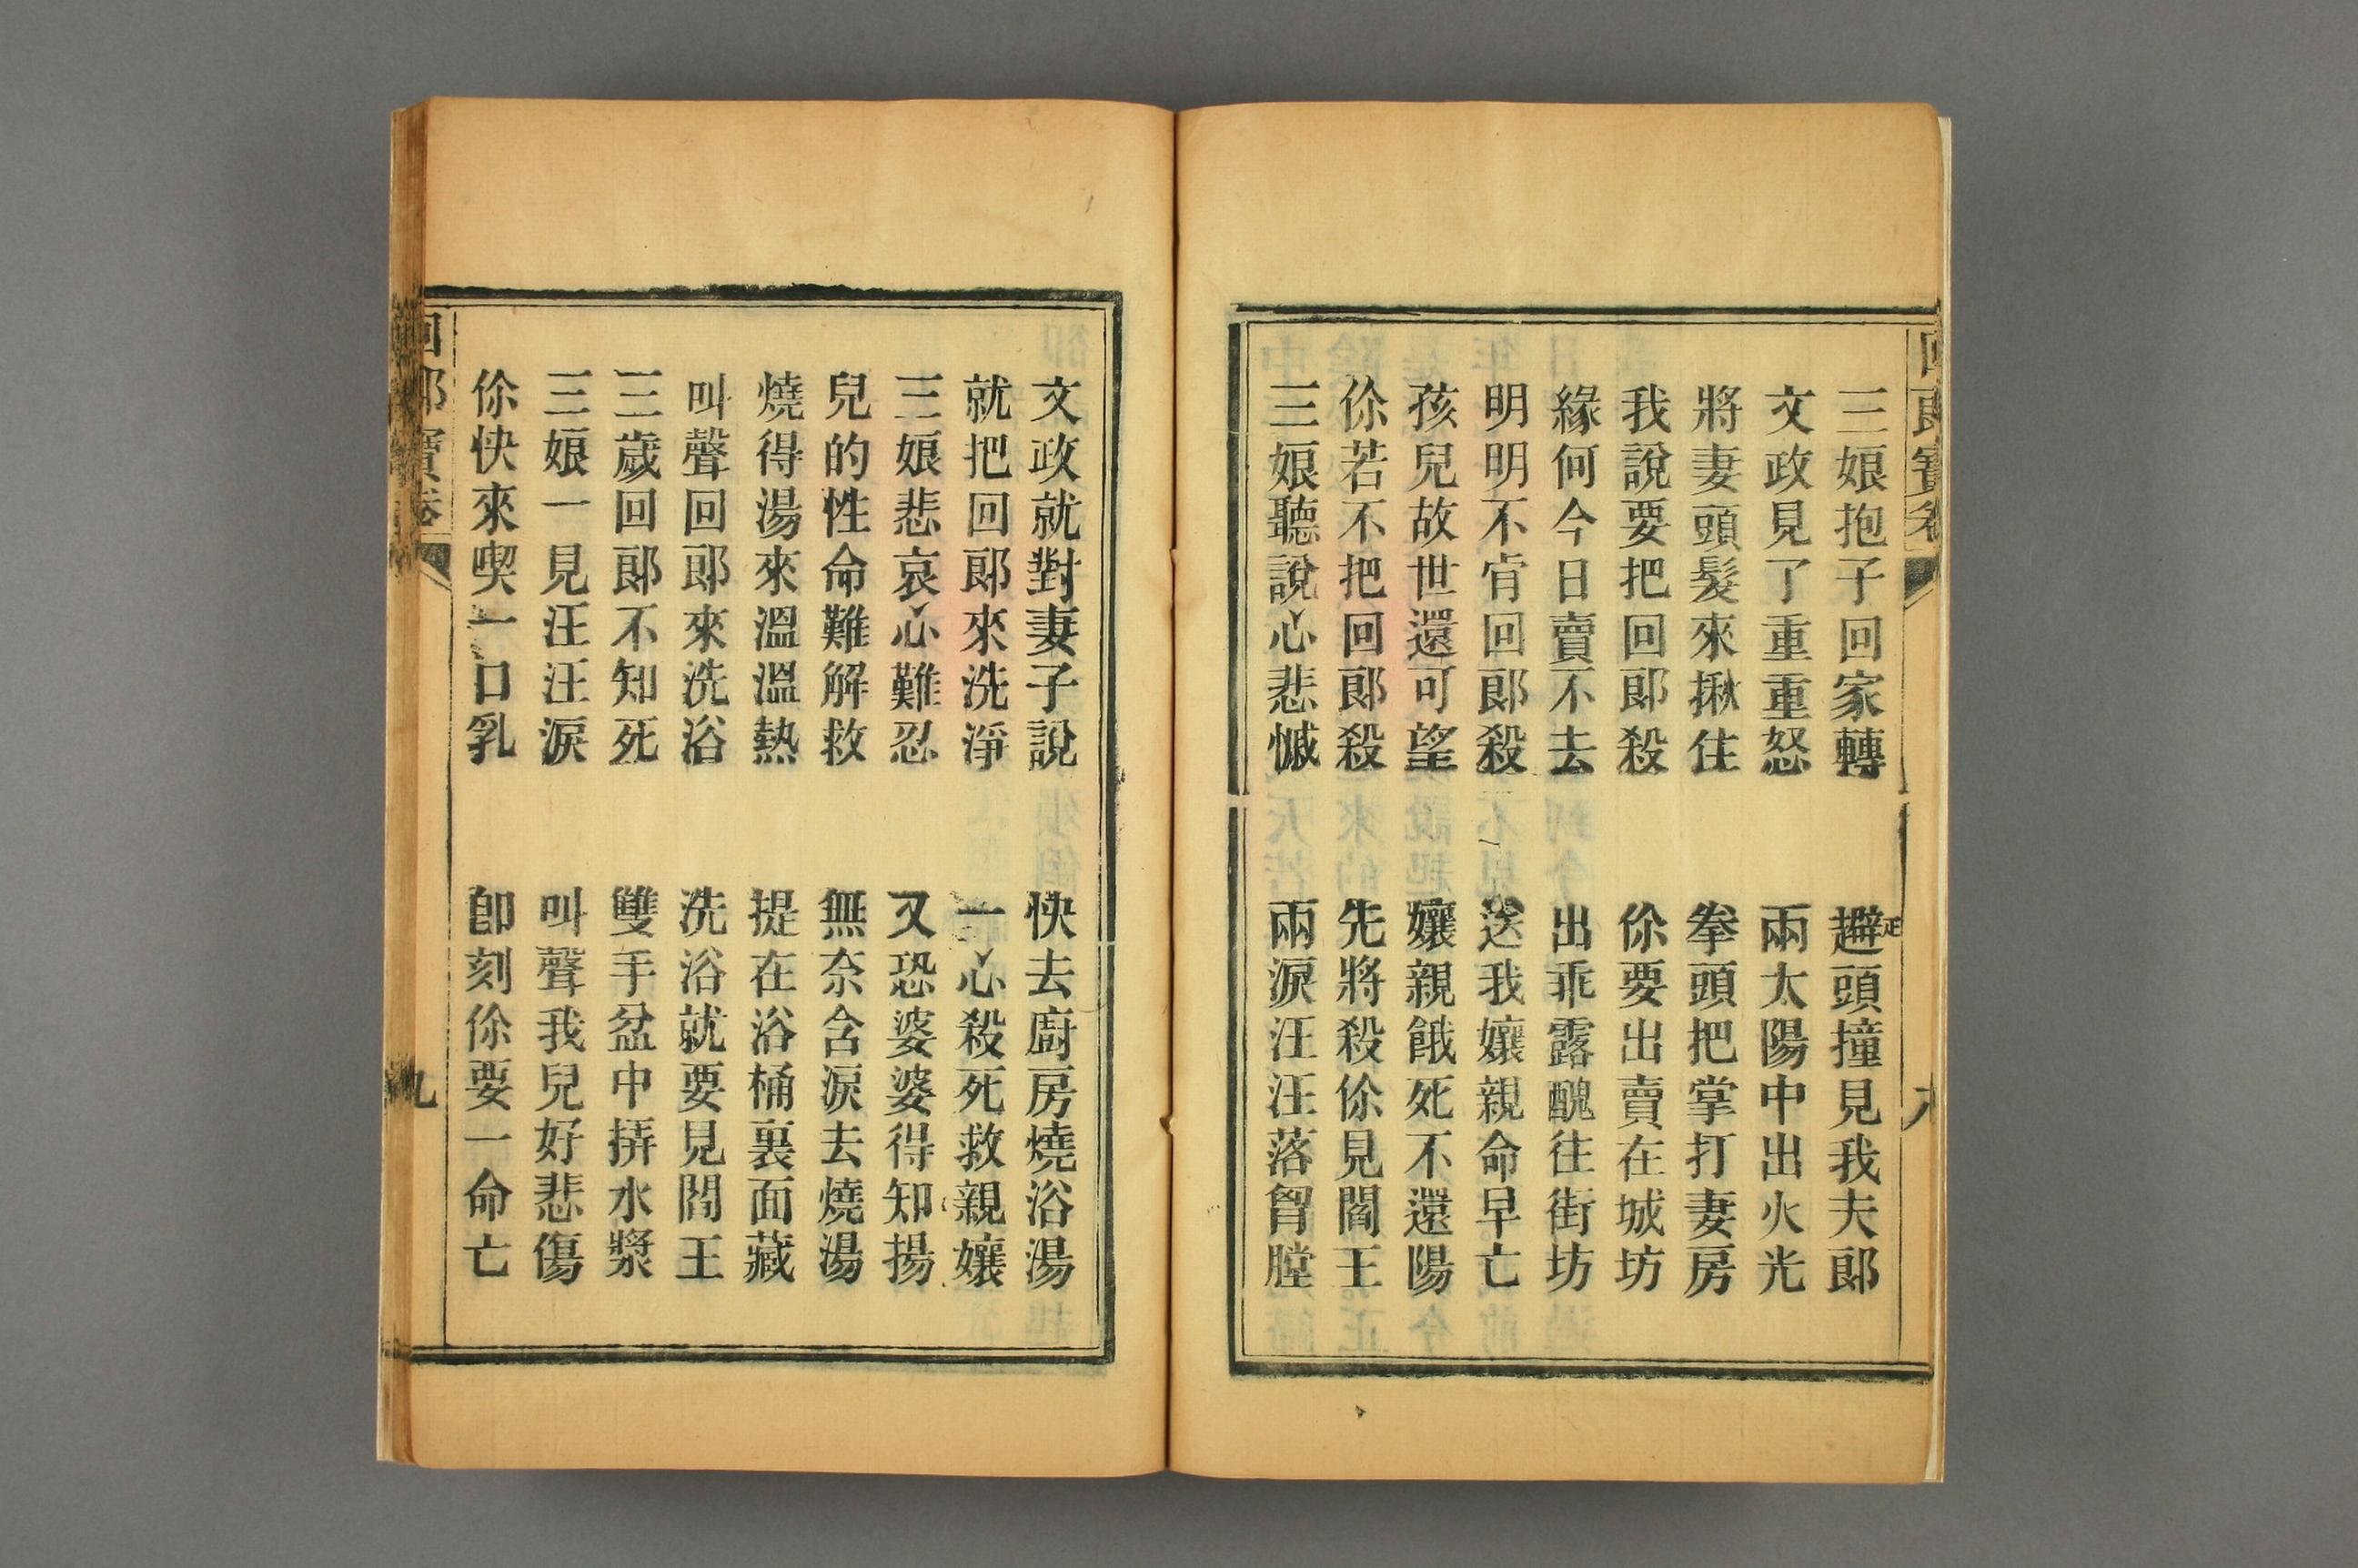 回郎寶卷
三娘抱子回家轉　趯頭撞見我夫郎
正
文政見了重重怒　兩太陽中出火光
將妻頭髮來揪住　拳頭把掌打妻房
我說要把回郎殺　你要出賣在城坊
緣何今日賣不去　出乖露醜往街坊
明明不肯回郎殺　送我孃親命早亡
孩兒故世還可望　孃親餓死不還陽
你若不把回郎殺　先將殺你見閻王
三娘聽說心悲慽　兩淚汪汪落胷膛
文政就對妻子說　快去廚房燒浴湯
就把回郎來洗淨　一心殺死救親孃
三娘悲哀心難忍　又恐婆婆得知揚
兒的性命難解救　無奈含淚去燒湯
燒得湯來溫溫熱　提在浴桶裏面藏
叫聲回郎來洗浴　洗浴就要見閻王
三歲回郎不知死　雙手盆中拚水漿
三娘一見汪汪淚　叫聲我兒好悲傷
你快來喫一口乳　卽刻你要一命亡
回郎寶卷
九